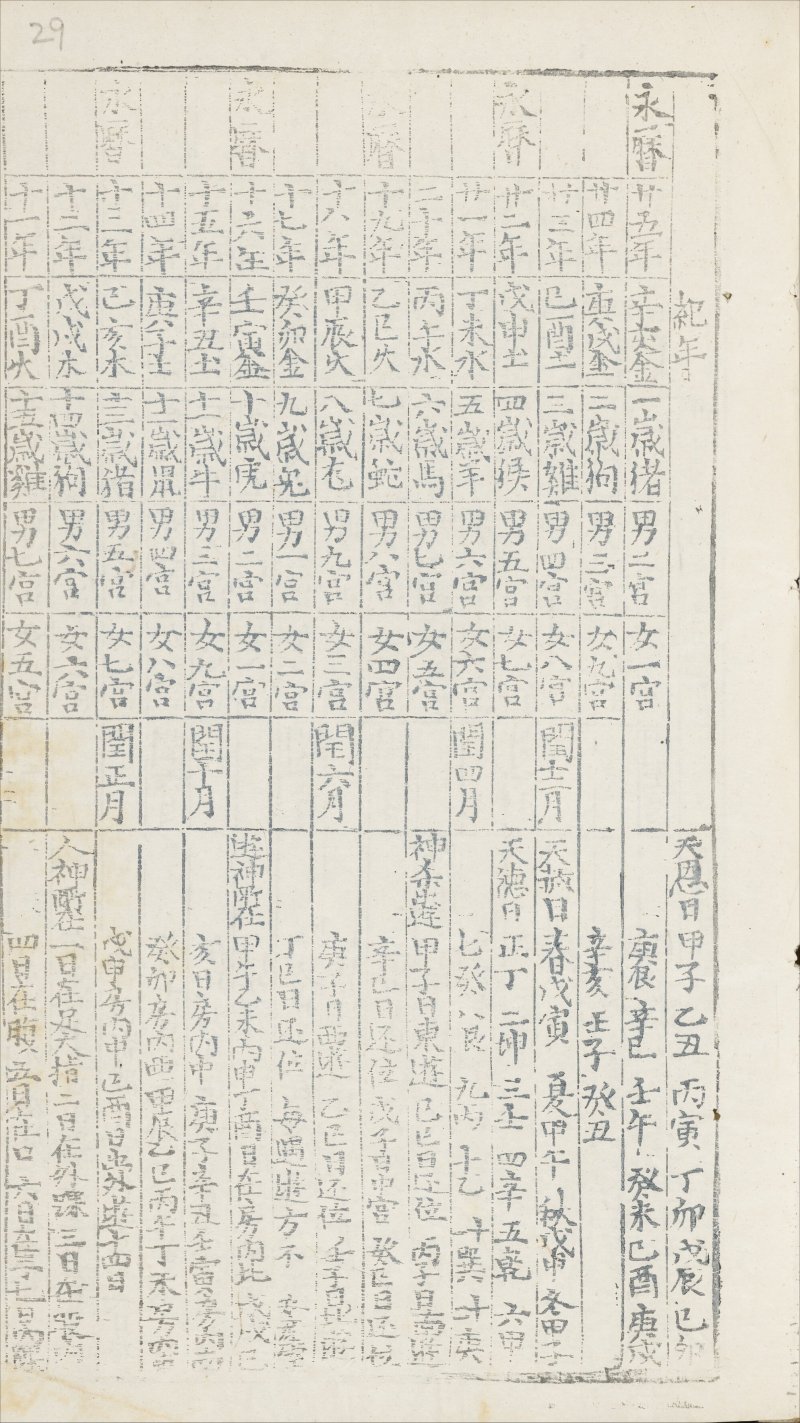 29
紀年
天恩日甲子 乙丑 丙寅 丁卯 戊辰 己卯
永曆 廿五年 辛亥金 一歲猪 男二宮 女一宮
庚辰 辛巳 壬午 癸未 己酉 庚戌
廿四年 庚戌金 二歲狗 男三宮 女九宮
辛亥 壬子 癸丑
廿三年 己酉土 三歲雞 男四宮 女八宮 閏十二月
天赦日 春戊寅 夏甲午 秋戊申 冬甲子
永曆 廿二年 戊申土 四歲猴 男五宮 女七宮
天德日 正丁 二坤 三壬 四辛 五乾 六甲
廿一年 丁未水 五歲羊 男六宮 女六宮 閏四月
七癸 八艮 九丙 十乙 十一巽 十二庚
二十年 丙午水 六歲馬 男七宮 女五宮
神 出遊 甲子日東遊 己巳日还位 丙子日南遊
永曆 十九年 乙巳火 七歲蛇 男八宮 女四宮
辛巳日还位 戊子日中宮 癸巳日还位
十八年 甲辰火 八歲 男九宮 女三宮 閏六月
庚子日西遊 乙巳日还位 壬子日北遊
十七年 癸卯金 九歲兔 男一宮 女二宮
丁巳日还位 每 出 方不
永曆 十六年 壬寅金 十歲虎 男二宮 女一宮
遊神所在 甲午乙未丙申丁酉日在房内北 戊戌己
十五年 辛丑土 十一歲牛 男三宮 女九宮 閏十月
亥日房内中 庚子辛丑壬寅房内南
十四年 庚子土 十二歲鼠 男四宮 女八宮
癸卯房内西 甲辰乙巳丙午丁未房内
永曆 十三年 己亥木 十三歲猪 男五宮 女七宮 閏正月
戊申房内中 己酉日出外遊十四日
十二年 戊戌木 十四歲狗 男六宮 女六宮
人神所在 一日在足大指 二日在外踝 三日在股内
十一年 丁酉火 十五歲雞 男七宮 女五宮
四日在腰 五日在口 六日在手 七日